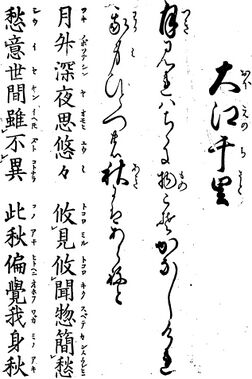 大江千里
月見れハちゝに物こそかなしけれ
我身ひとつの秋にはあらねと
月外深夜思悠々 攸見攸聞惣簡愁
愁意世間雖不異 此秋偏覺我身秋